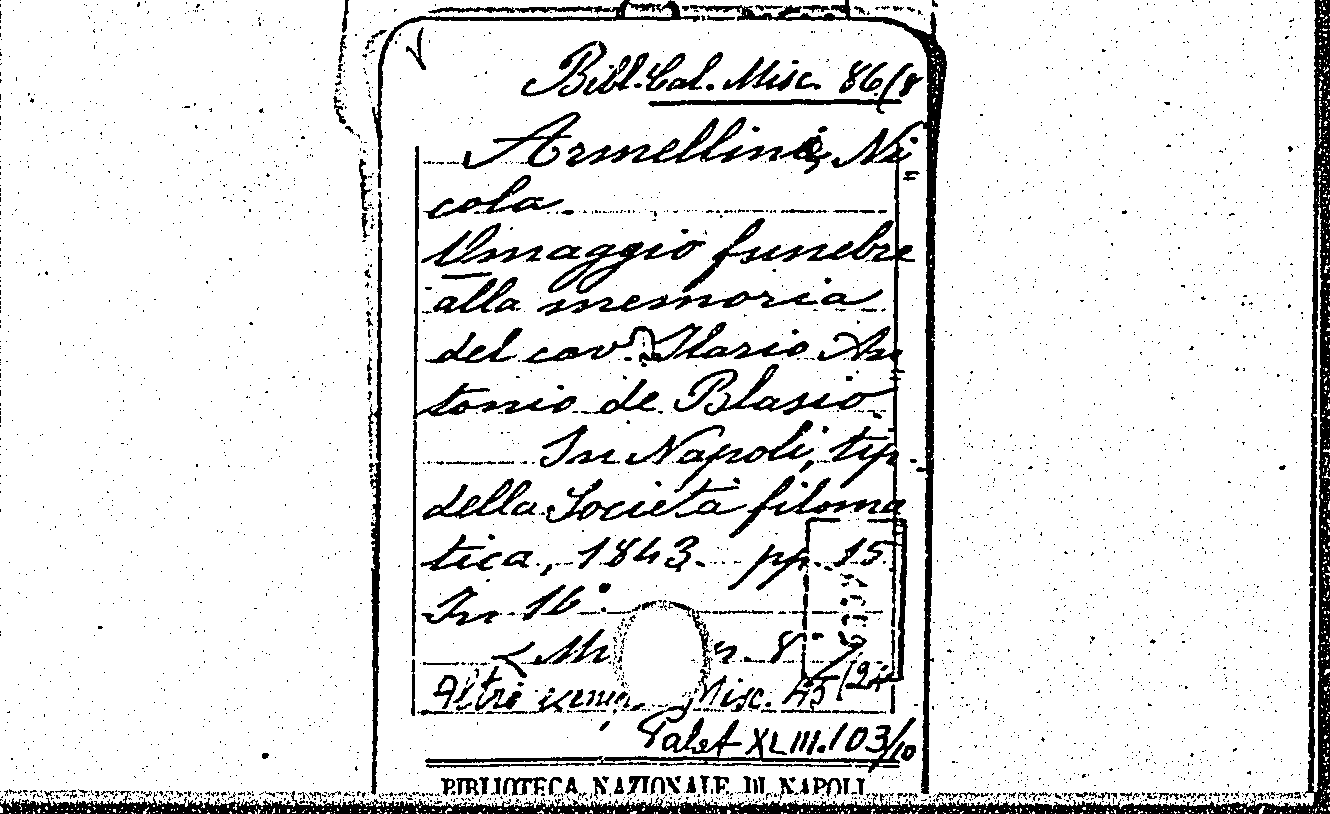 Bibl. Cal. Misc. 86/8
Armellini, Ni=
cola.
Omaggio funebre
alla memoria
del cav. Ilario An=
tonio de Blasio
In Napoli, tip.
della Società filoma
tica, 1843. pp. 15.
In 16°.
Altro Misc.
Palat XLIII.103/10
BIBLIOTECA NAZIONALE DI NAPOLI